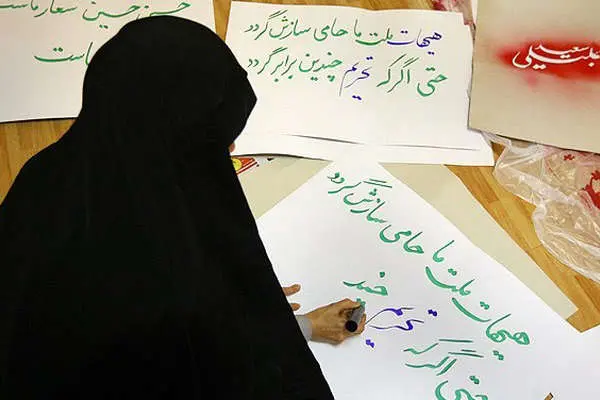 حسین حسین شعار ماست
ماست
هیهات ملت ما حامی سازش گردد
حتی اگر که تحریم چندین برابر گردد
سعید
جلیلی
هیهات ملت ما حامی سازش گردد
حتی اگر که تحریم چند